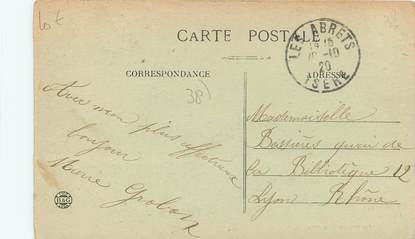 Lot
CARTE POSTALE
LES ABRETS
ISERE
16-10
20
CORRESPONDANCE
ADRESSE
38)
Avec mon plus affectueux
bonjour
Marie
B&G
Mademoiselle
Bassières quai de
la Bibliotèque 12
Lyon Rhône